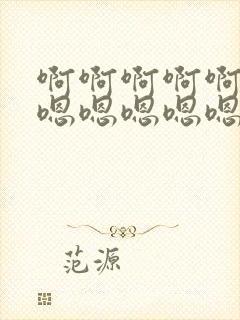 啊啊啊啊啊
嗯嗯嗯嗯嗯
范源